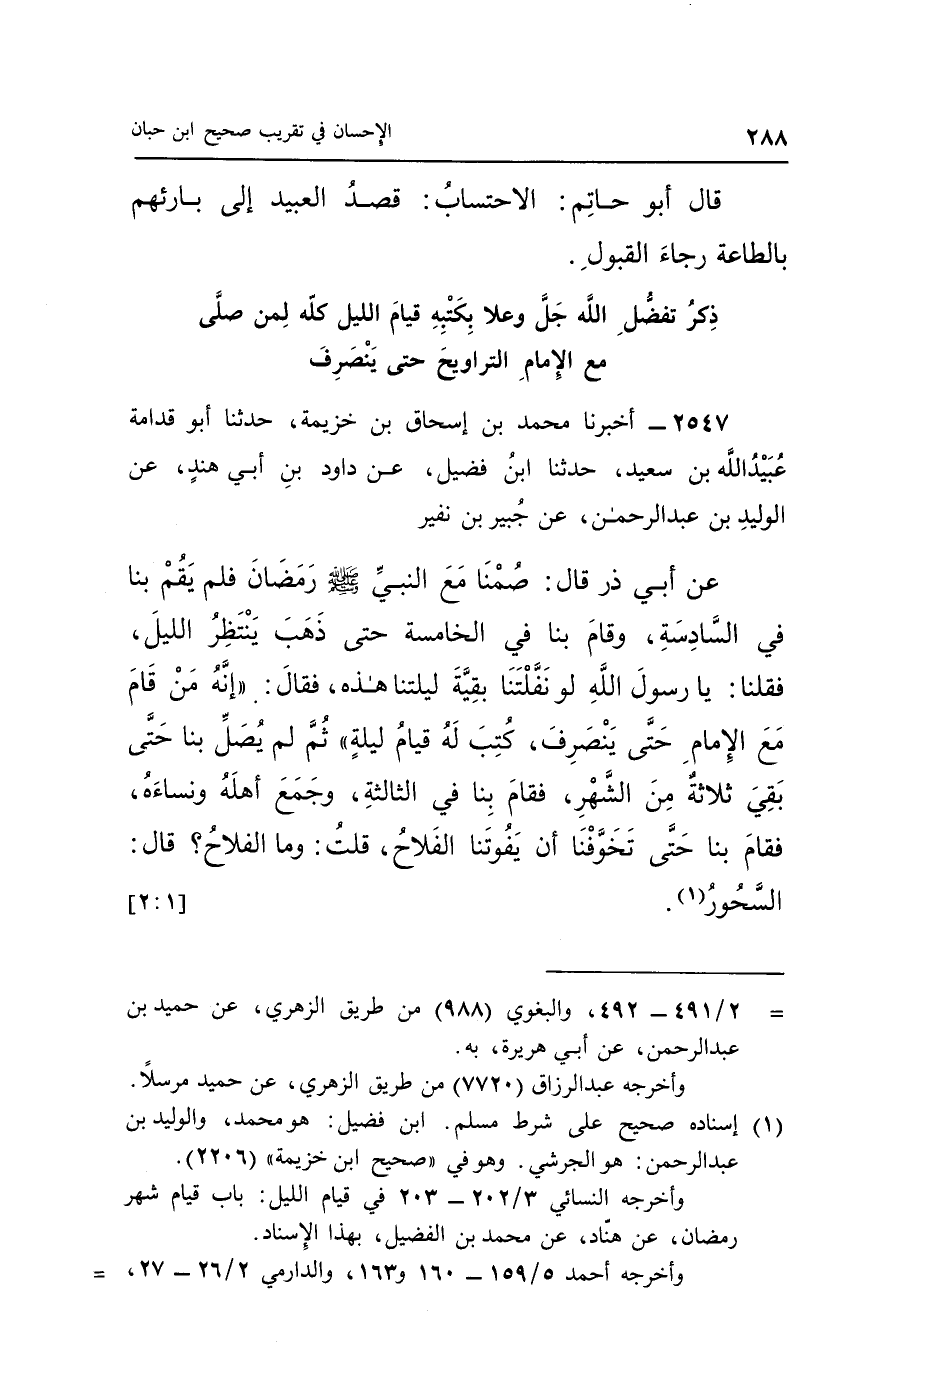 ٢٨٨ الإحسان في تقريب صحيح ابن حبان
قال أبو حـاتِم: الاحتسابُ: قصـدُ العبيد إلى بـارئهم
بالطاعة رجاءَ القبولِ.
ذِكرُ تفضُّلِ اللَّه جَلَّ وعلا بِكَتْبِهِ قيامَ الليل كلّه لِمن صلَّى
مع الإِمامِ التراويحَ حتى يَنْصَرِفَ
٢٥٤٧ ـ أخبرنا محمد بن إسحاق بن خزيمة، حدثنا أبو قدامة
عُبَيْدُاللَّه بن سعيد، حدثنا ابنُ فضيل، عـن داود بنِ أبـي هندٍ، عن
الوليدِ بن عبدالرحمـٰن، عن جُبير بن نفير
عن أبـي ذر قال: صُمْنَا مَعَ النبيِّ ﷺ رَمَضَانَ فلم يَقُمْ بنا
في السَّادِسَةِ، وقامَ بنا في الخامسة حتى ذَهَبَ يَنْتَظِرُ الليلَ،
فقلنا: يا رسولَ اللَّهِ لو نَفَّلْتَنَا بقِيَّةَ ليلتنا هـٰذه، فقالَ: «إنَّهُ مَنْ قَامَ
مَعَ الإِمامِ حَتَّى يَنْصَرِفَ، كُتِبَ لَهُ قيامُ ليلةٍ» ثُمَّ لم يُصَلِّ بنا حَتَّى
بَقِيَ ثلاثةٌ مِنَ الشَّهْرِ، فقامَ بِنا في الثالثةِ، وجَمَعَ أهلَهُ ونساءَهُ،
فقامَ بنا حَتَّى تَخَوَّفْنَا أن يَفُوتَنا الفَلاحُ، قلتُ: وما الفلاحُ؟ قال:
السَّحُورُ(١). [٢:١]
= ٤٩١/٢ ـ ٤٩٢، والبغوي (٩٨٨) من طريق الزهري، عن حميد بن
عبدالرحمن، عن أبـي هريرة، به.
وأخرجه عبدالرزاق (٧٧٢٠) من طريق الزهري، عن حميد مرسلاً.
(١) إسناده صحيح على شرط مسلم. ابن فضيل: هو محمد، والوليد بن
عبدالرحمن: هو الجرشي. وهو في «صحيح ابن خزيمة» (٢٢٠٦).
وأخرجه النسائي ٢٠٢/٣ ـ ٢٠٣ في قيام الليل: باب قيام شهر
رمضان، عن هنّاد، عن محمد بن الفضيل، بهذا الإِسناد.
وأخرجه أحمد ١٥٩/٥ ـ ١٦٠ و١٦٣، والدارمي ٢٦/٢ ـ ٢٧، =